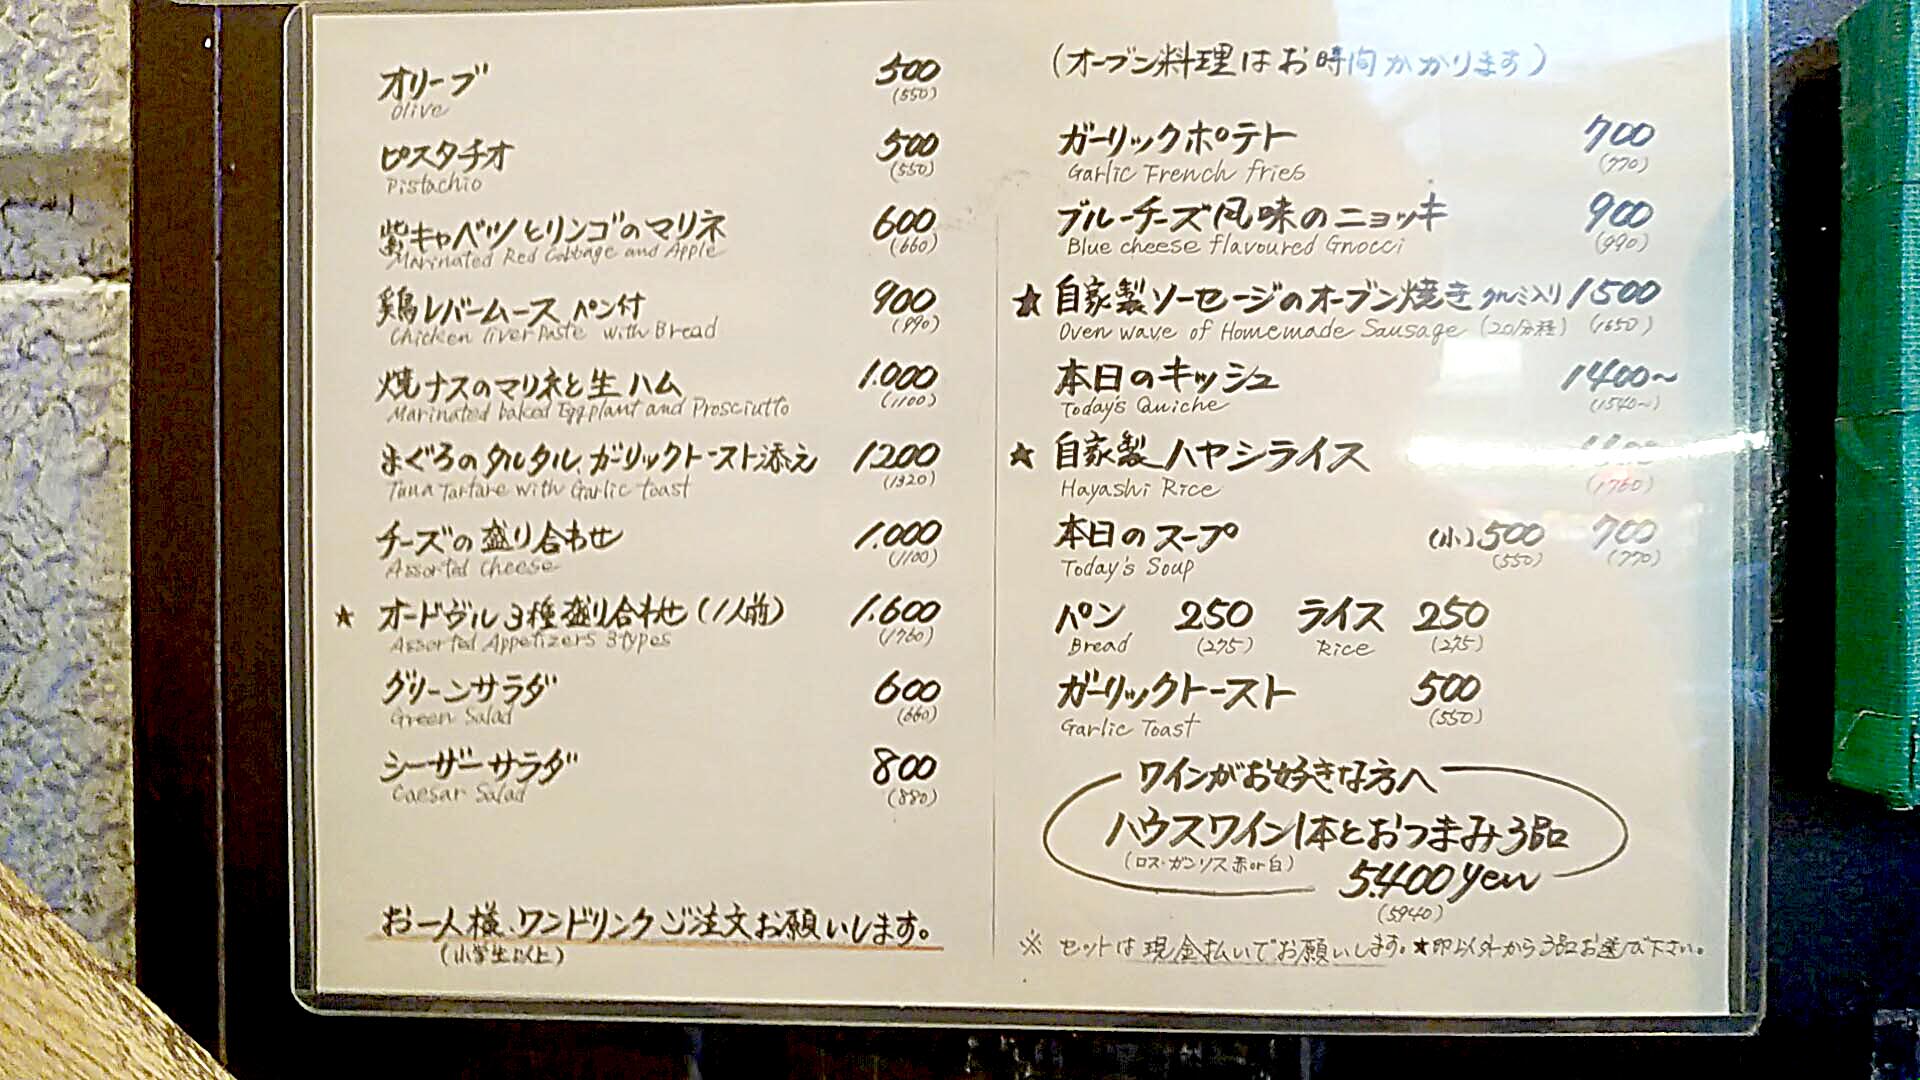 オリーブ 500
Olive (550)
ピスタチオ 500
Pistachio (550)
紫キャベツとリンゴのマリネ 600
Marinated Red Cabbage and Apple (660)
鶏レバームース パン付 900
Chicken liver Paste with Bread (990)
焼ナスのマリネと生ハム 1.000
Marinated baked Eggplant and Prosciutto (1100)
まぐろのタルタル、ガーリックトースト添え 1200
Tuna Tartare with Garlic toast (1320)
チーズの盛り合わせ 1.000
Assorted Cheese (1100)
★ オードヴル3種盛り合わせ(1人前) 1.600
Assorted Appetizers 3types (1760)
グリーンサラダ 600
Green Salad (660)
シーザーサラダ 800
Caesar Salad (880)
お一人様、ワンドリンクご注文お願いします。
(小学生以上)
(オーブン料理はお時間かかります)
ガーリックポテト 700
Garlic French fries (770)
ブルーチーズ風味のニョッキ 900
Blue cheese flavoured Gnocci (990)
★ 自家製ソーセージのオーブン焼き クルミ入り 1500
Oven wave of Homemade Sausage (20分程) (1650)
本日のキッシュ 1400〜
Today's Quiche (1540〜)
★ 自家製ハヤシライス
Hayashi Rice (1760)
本日のスープ (小)500 700
Today's Soup (550) (770)
パン 250 ライス 250
Bread (275) Rice (275)
ガーリックトースト 500
Garlic Toast (550)
ワインがお好きな方へ
ハウスワイン1本とおつまみ3品
(ロス・ガンソス赤or白) 5.400yen
(5940)
※ セットは現金払いでお願いします。★印以外から3品お選び下さい。